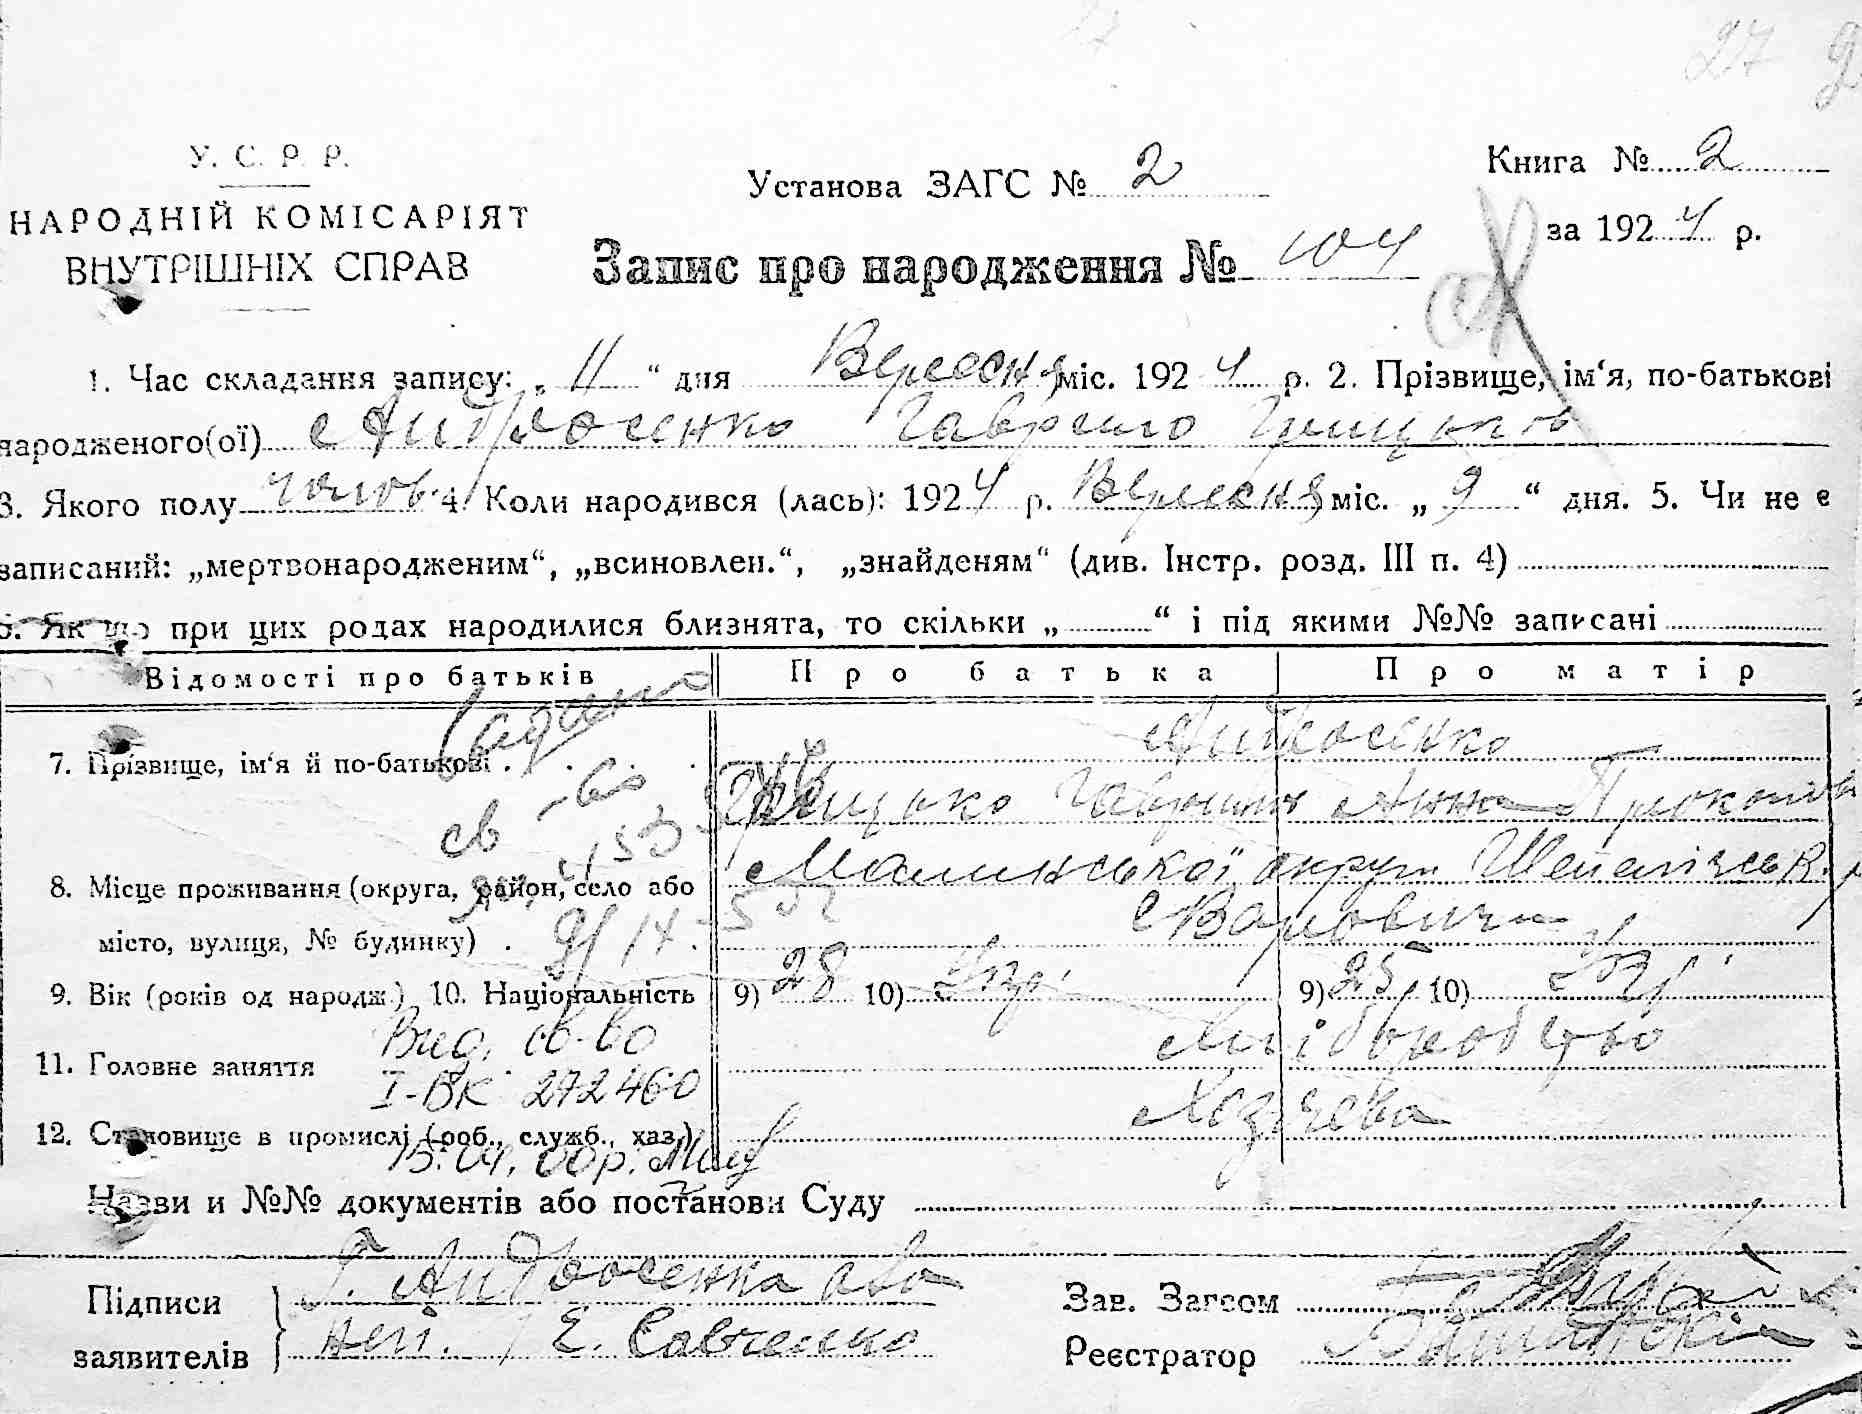 27
У. С. Р. Р.
НАРОДНІЙ КОМІСАРІЯТ
ВНУТРІШНІХ СПРАВ
Установа ЗАГС № 2
Книга № 2
за 1924 р.
Запис про народження № 104
1. Час складання запису: „ 11 “ дня Вересня міс. 1924 р. 2. Прізвище, ім‘я, по-батькові
народженого(ої) Андросенко Гаврило Грицьків
3. Якого полу чолов. 4. Коли народився (лась): 1924 р. Вересня міс. „ 9 “ дня. 5. Чи не є
записаний: „мертвонародженим“, „всиновлен.“, „знайденям“ (див. Інстр. розд. III п. 4)
6. Як що при цих родах народилися близнята, то скільки „ “ і під якими №№ записані
Відомості про батьків Про батька Про матір
7. Прізвище, ім‘я й по-батькові Андросенко
Грицько Гаврилів Анна Прокопів
8. Місце проживання (округа, район, село або Малинської округи Шепелічськ. р
місто, вулиця, № будинку) с Варовичи
9. Вік (років од народж.) 10. Національність 9) 28 10) Укр. 9) 25 10) Укр.
Вид. св-во
11. Головне заняття Хліборобство
I-ВК 272460
12. Становище в промислі (роб., служб., хаз.) Хозяєва
Назви и №№ документів або постанови Суду
Підписи заявителів Г. Андросенка а во
неп. / Е. Савченко
Зав. Загсом
Реєстратор